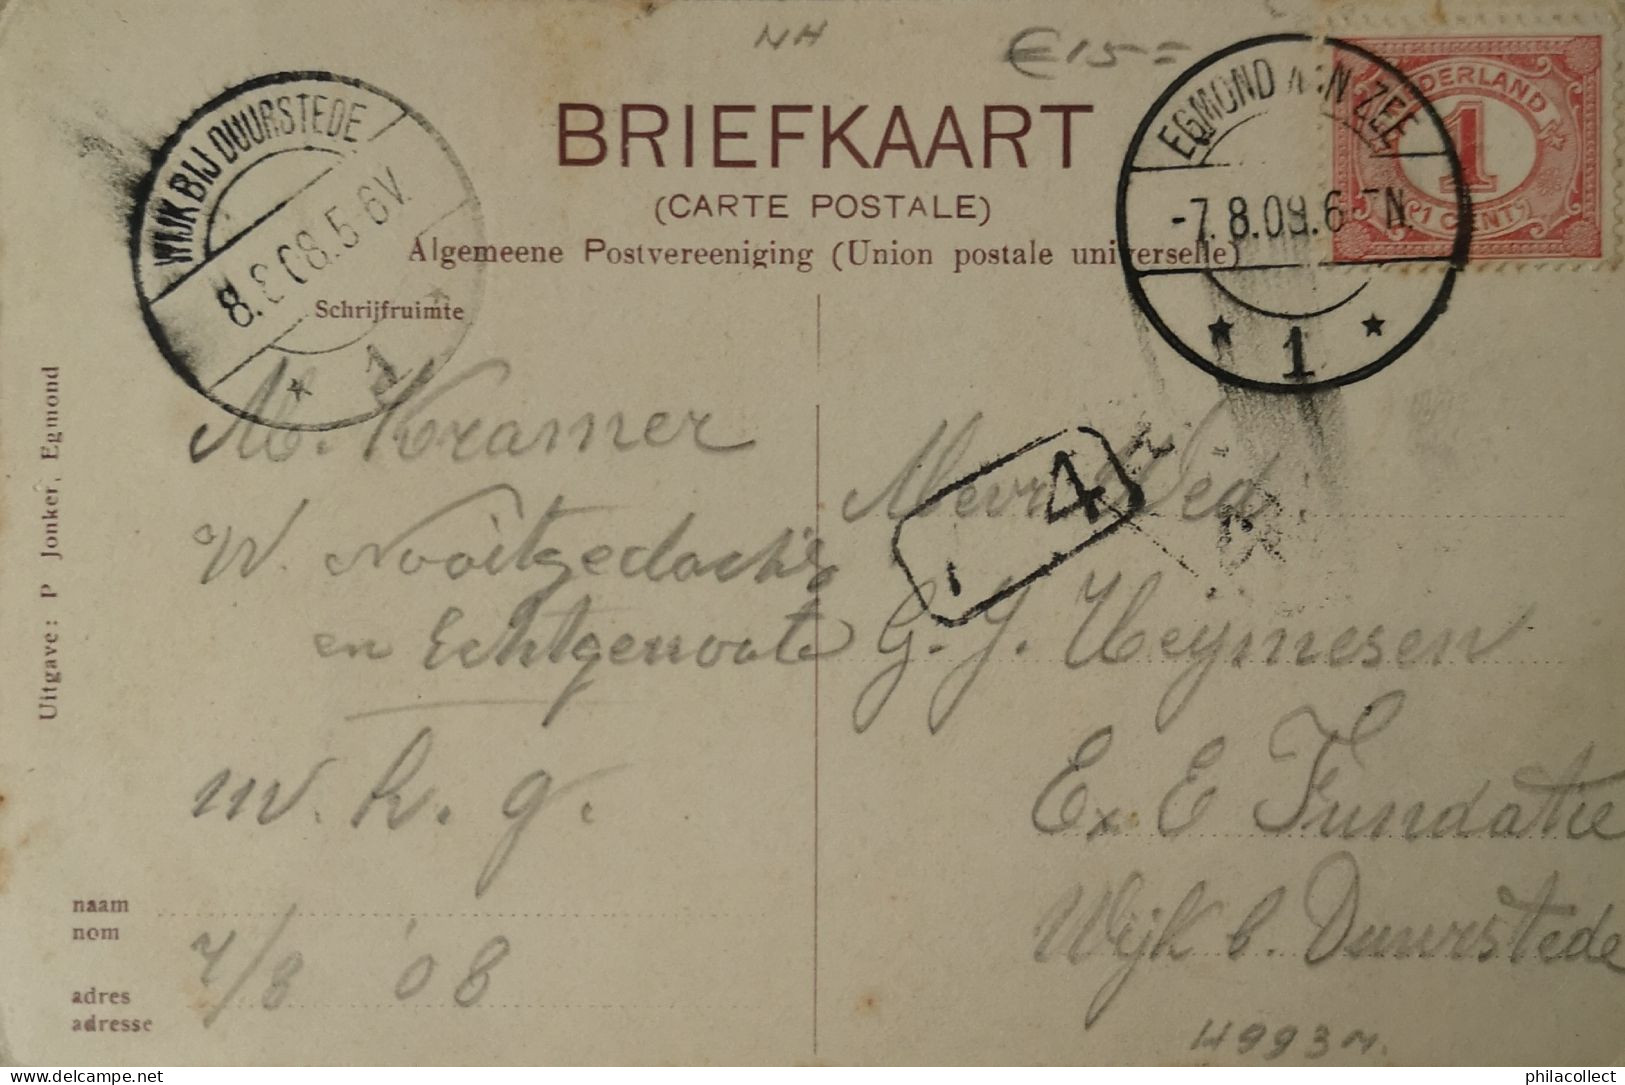 NH
€15=
BRIEFKAART
(CARTE POSTALE)
Algemeene Postvereeniging (Union postale universelle)
WIJK BIJ DUURSTEDE
8.8.08.5-6V.
1
EGMOND AAN ZEE
-7.8.08.6-7N.
1
NEDERLAND
1
1 CENT
Schrijfruimte
Uitgave: P Jonker, Egmond
M. Kramer
W. Nooitgedacht
en Echtgenoote
m. h. g.
7/8 '08
naam
nom
adres
adresse
4
Mevr. Wed.
G. J. Heymesen
Ex E Fundatie
Wijk b. Duurstede
philacollect